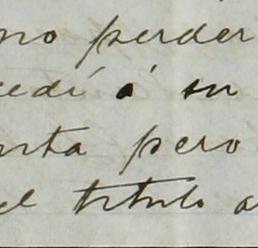 no perder
cedí á su
nta pero
el título a